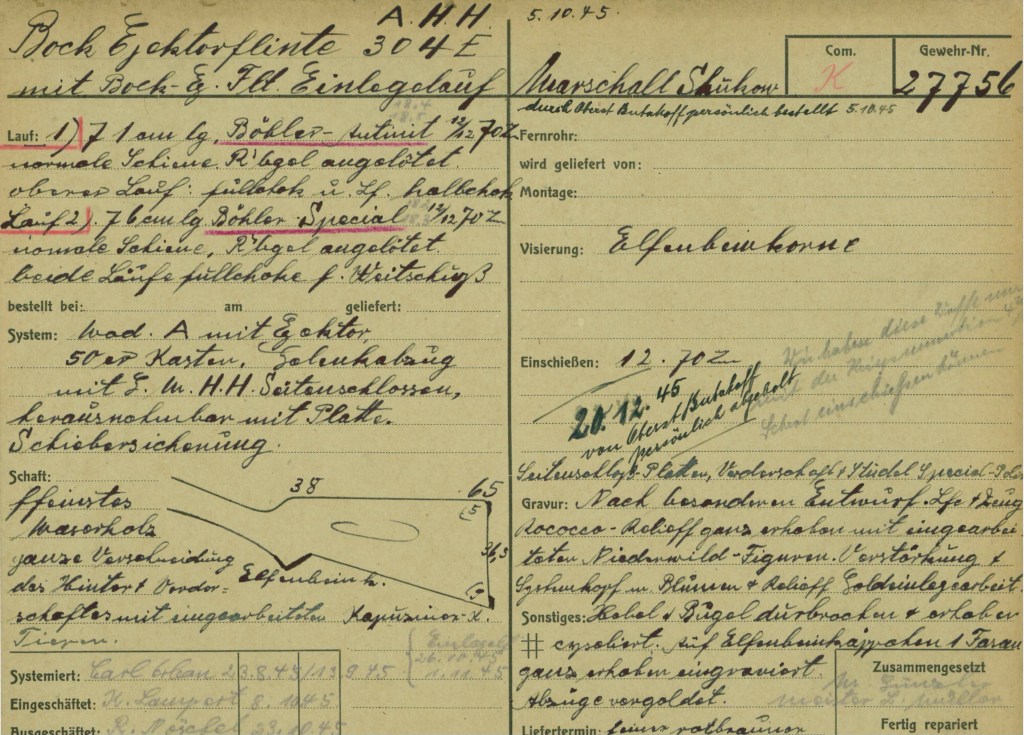 A.H.H.
Bock Ejektorflinte 304E
mit Bock-Ej. Fll. Einlegelauf
Lauf: 1) 71 cm lg. Böhler-Antinit 12/12 70Z
normale Schiene. R'bgel angelötet
oberer Lauf: fullchok u. Lf. halbchok
Lauf 2). 76 cm lg. Böhler-Special 12/12 70Z
normale Schiene, R'bgel angelötet.
beide Läufe fullchoke f. Weitschuß
bestellt bei: am geliefert:
System: Mod. A mit Ejektor
50er Kasten, Gelenkabzug
mit H.H. Seitenschlossen,
herausnehmbar mit Platte.
Schiebersicherung.
Schaft:
ffeinstes
Maserholz
ganze Verschneidung
des Hinter & Vorder-
schaftes mit eingearbeiteten
Tieren.
38
65
36,5
Elfenbeink.
Kapuziner-K.
Systemiert: Carl Urban 23.8.45/13.9.45
Einlegelf
26.10.45
1.11.45
Eingeschäftet: K. Lampert 8.10.45
Ausgeschäftet: R. Nöschel 23.10.45
5.10.45.
Com.
K
Gewehr-Nr.
27756
Marschall Shukow
durch Oberst Butakoff persönlich bestellt 5.10.45
Fernrohr:
wird geliefert von:
Montage:
Visierung: Elfenbeinkorne
Einschießen: 12. 70Z
Wir haben diese Waffe nur
mit der Kriegsmunition
Schrot einschießen können
20.12.45
von Oberst Butakoff
persönlich abgeholt
Seitenschloß-Platten, Vorderschaft & Special
Gravur: Nach besonderen Entwurf. Lfe & Zeug
Rococco-Relieff ganz erhaben mit eingearbei
teten Niederwild-Figuren. Verstörkung &
Systemkopf m. Blumen & Relieff Goldeinlegearbeit.
Sonstiges: Hebel & Bügel durbrochen & erhaben
# cyseliert. Auf Elfenbeinkäppchen 1 Faran
ganz erhaben eingraviert.
Abzüge vergoldet.
Zusammengesetzt
Fertig repariert
Liefertermin: feine rotbrauner